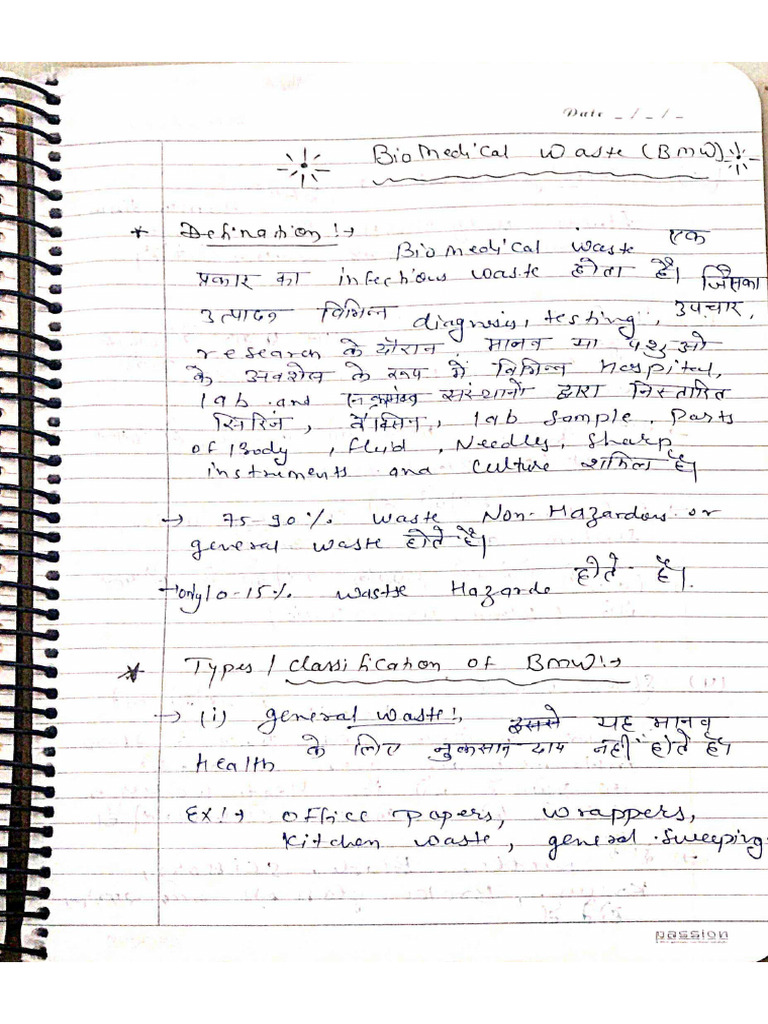 Date _/_/_
BioMedical Waste (BMW)
* Defination!→
Biomedical waste एक
प्रकार का infectious waste होता है। जिसका
उत्पादन विभिन्न diagnosis, testing, उपचार,
research के दौरान मानव या पशुओ
के अवशेष के रूप में विभिन्न Hospital,
lab and संस्थानों द्वारा निस्तारित
सिरिंज, वैक्सिन, lab sample, Parts
of Body, fluid, Needles, Sharp
instruments and culture शामिल है।
→ 75-90% waste Non-Hazardous or
general waste होते है।
→ only 10-15% wastse Hazarde होते है।
* Types / Classification of BMW!→
→ (i) general waste!, इससे यह मानव
Health के लिए नुकसान दाय नहीं होते है।
EX!→ office papers, wrappers,
kitchen waste, general sweeping.
passion